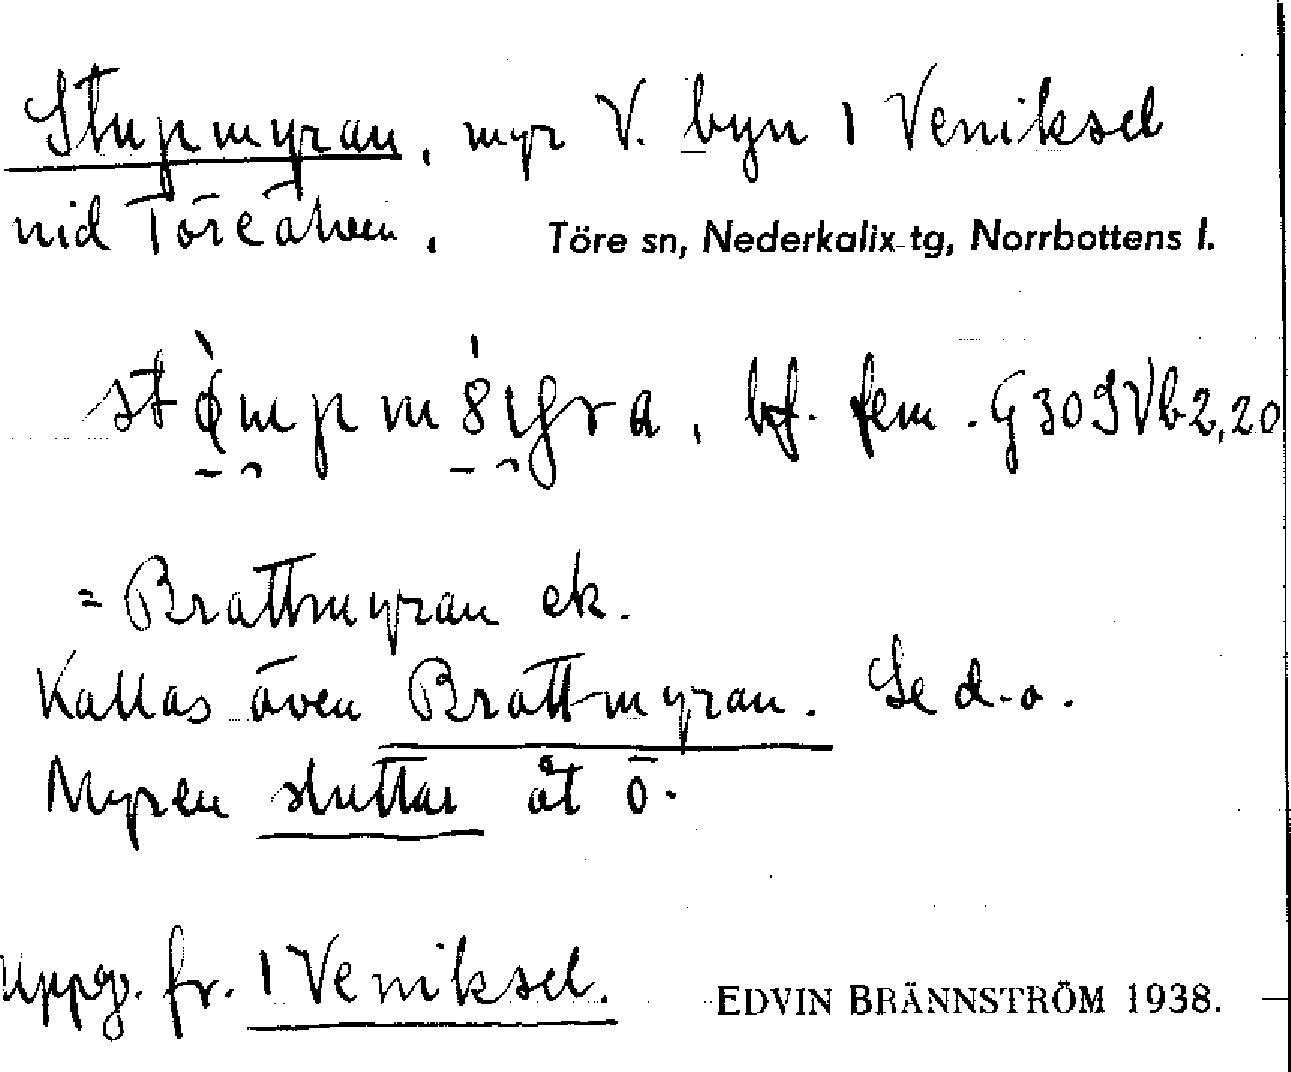 Stupmyran, myr V. byn 1 Veniksel
vid Töreälven. Töre sn, Nederkalix tg, Norrbottens l.
bf. fem. G30 IVb2,20
= Brattmyran ek.
Kallas även Brattmyran. Se d.o.
Myren sluttar åt ö.
Uppg. fr. 1 Veniksel. EDVIN BRÄNNSTRÖM 1938.